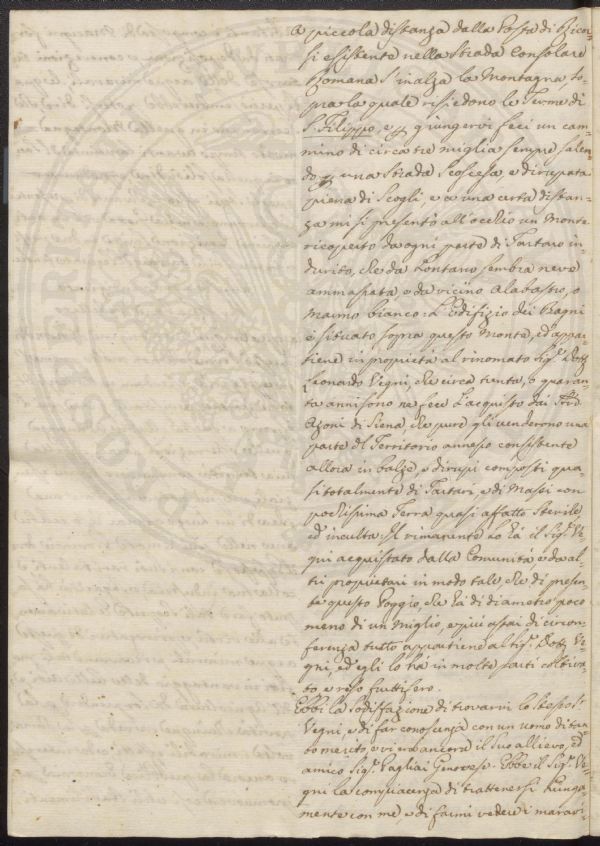 a piccola distanza dalla Posta di Ricor-
si esistente nella Strada Consolare
Romana s'inalza la Montagna, so-
pra la quale risiedono le Terme di
S. Filippo, e p giungervi feci un cam-
mino di circa tre miglia sempre salen-
do p una Strada Scoscesa, e dirupata
piena di Scogli, e a una certa distan-
za mi si presentò all'occhio un Monte
ricoperto da ogni parte di Tartaro in-
durito, che da Lontano sembra neve
ammassata e da vicino Alabastro, o
Marmo bianco. L'edifizio dei Bagni
è situato sopra questo Monte, ed appar-
tiene in proprietà al rinomato Sig.r Dott.
Leonardo Vegni, che circa trenta, o quaran-
ta anni sono ne fece l'acquisto dai
Azoni di Siena che pure gli venderono una
parte del Territorio annesso consistente
allora in balze, e dirupi composti qua-
si totalmente di Tartari, e di Massi con
pochissima Terra quasi affatto sterile,
ed inculta. Il rimanente lo ha il Sig.r Ve-
gni acquistato dalla Comunità e da al-
tri proprietari in modo tale, che di presen-
te questo Poggio, che ha di diametro poco
meno di un miglio, e più assai di circon-
ferenza tutto appartiene al Sig.r Dott. Ve-
gni, ed egli lo ha in molte parti coltiva-
to e reso fruttifero.
Ebbi la Sodisfazione di trovarvi lo stesso S.r
Vegni, e di far conoscenza con un uomo di tan-
to merito, e vi era ancora il suo allievo, ed
amico Sig.r Pagliai Genovese. Ebbe il Sig.r Ve-
gni la compiacenza di trattenersi lunga-
mente con me, e di farmi vedere i maravi-